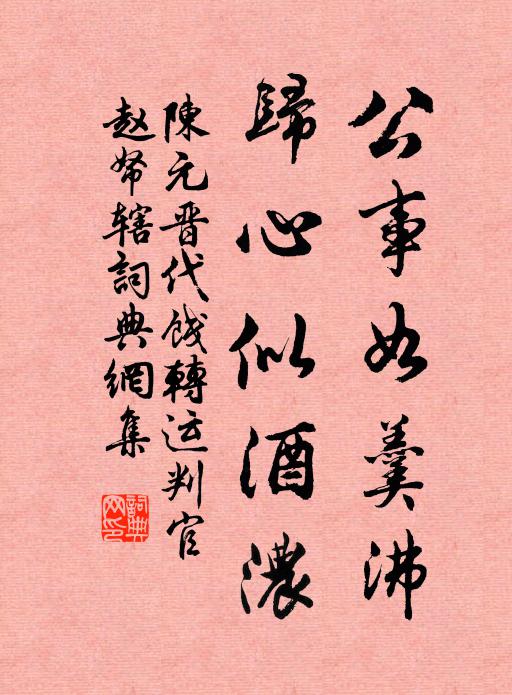 公事如羹沸
歸心似酒濃
陳元晋代餞轉运判官
赵帑辖詞典網集
詞典网印